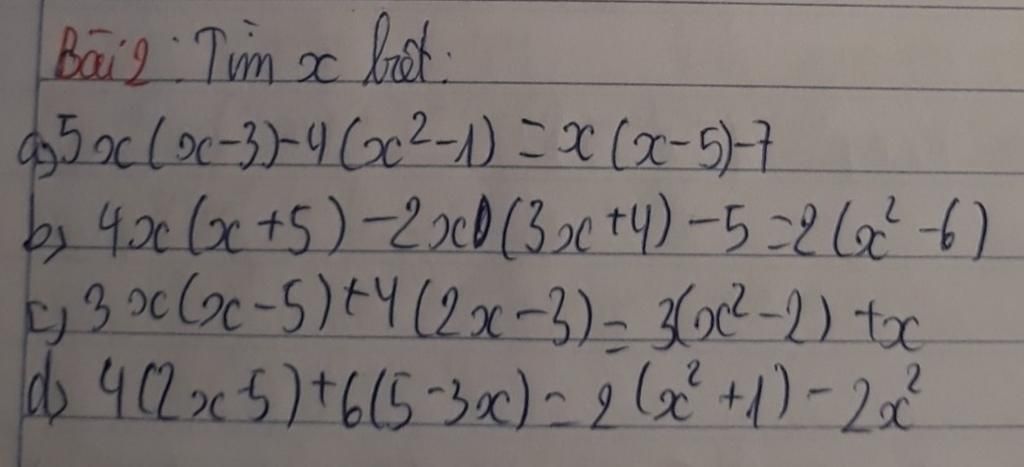 Bài 2: Tìm x biết:
a) 5x(x-3)-4(x²-1) = x(x-5)-7
b) 4x(x+5)-2x(3x+4)-5=2(x²-6)
c) 3x(x-5)+4(2x-3)=3(x²-2)+x
d) 4(2x-5)+6(5-3x)=2(x²+1)-2x²